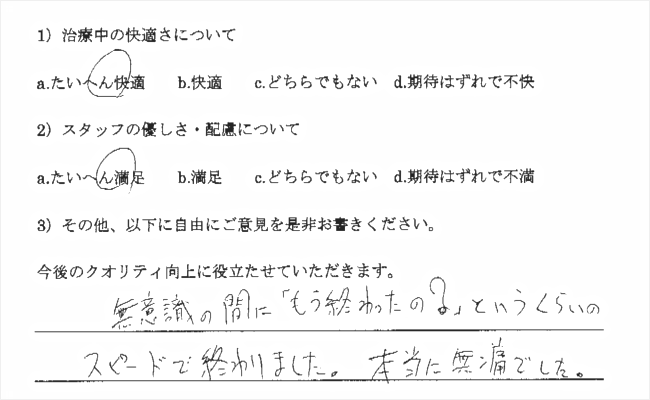 1）治療中の快適さについて
a.たいへん快適　b.快適　c.どちらでもない　d.期待はずれで不快
2）スタッフの優しさ・配慮について
a.たいへん満足　b.満足　c.どちらでもない　d.期待はずれで不満
3）その他、以下に自由にご意見を是非お書きください。
今後のクオリティ向上に役立たせていただきます。
無意識の間に「もう終わったの?」というくらいの
スピードで終わりました。 本当に無痛でした。